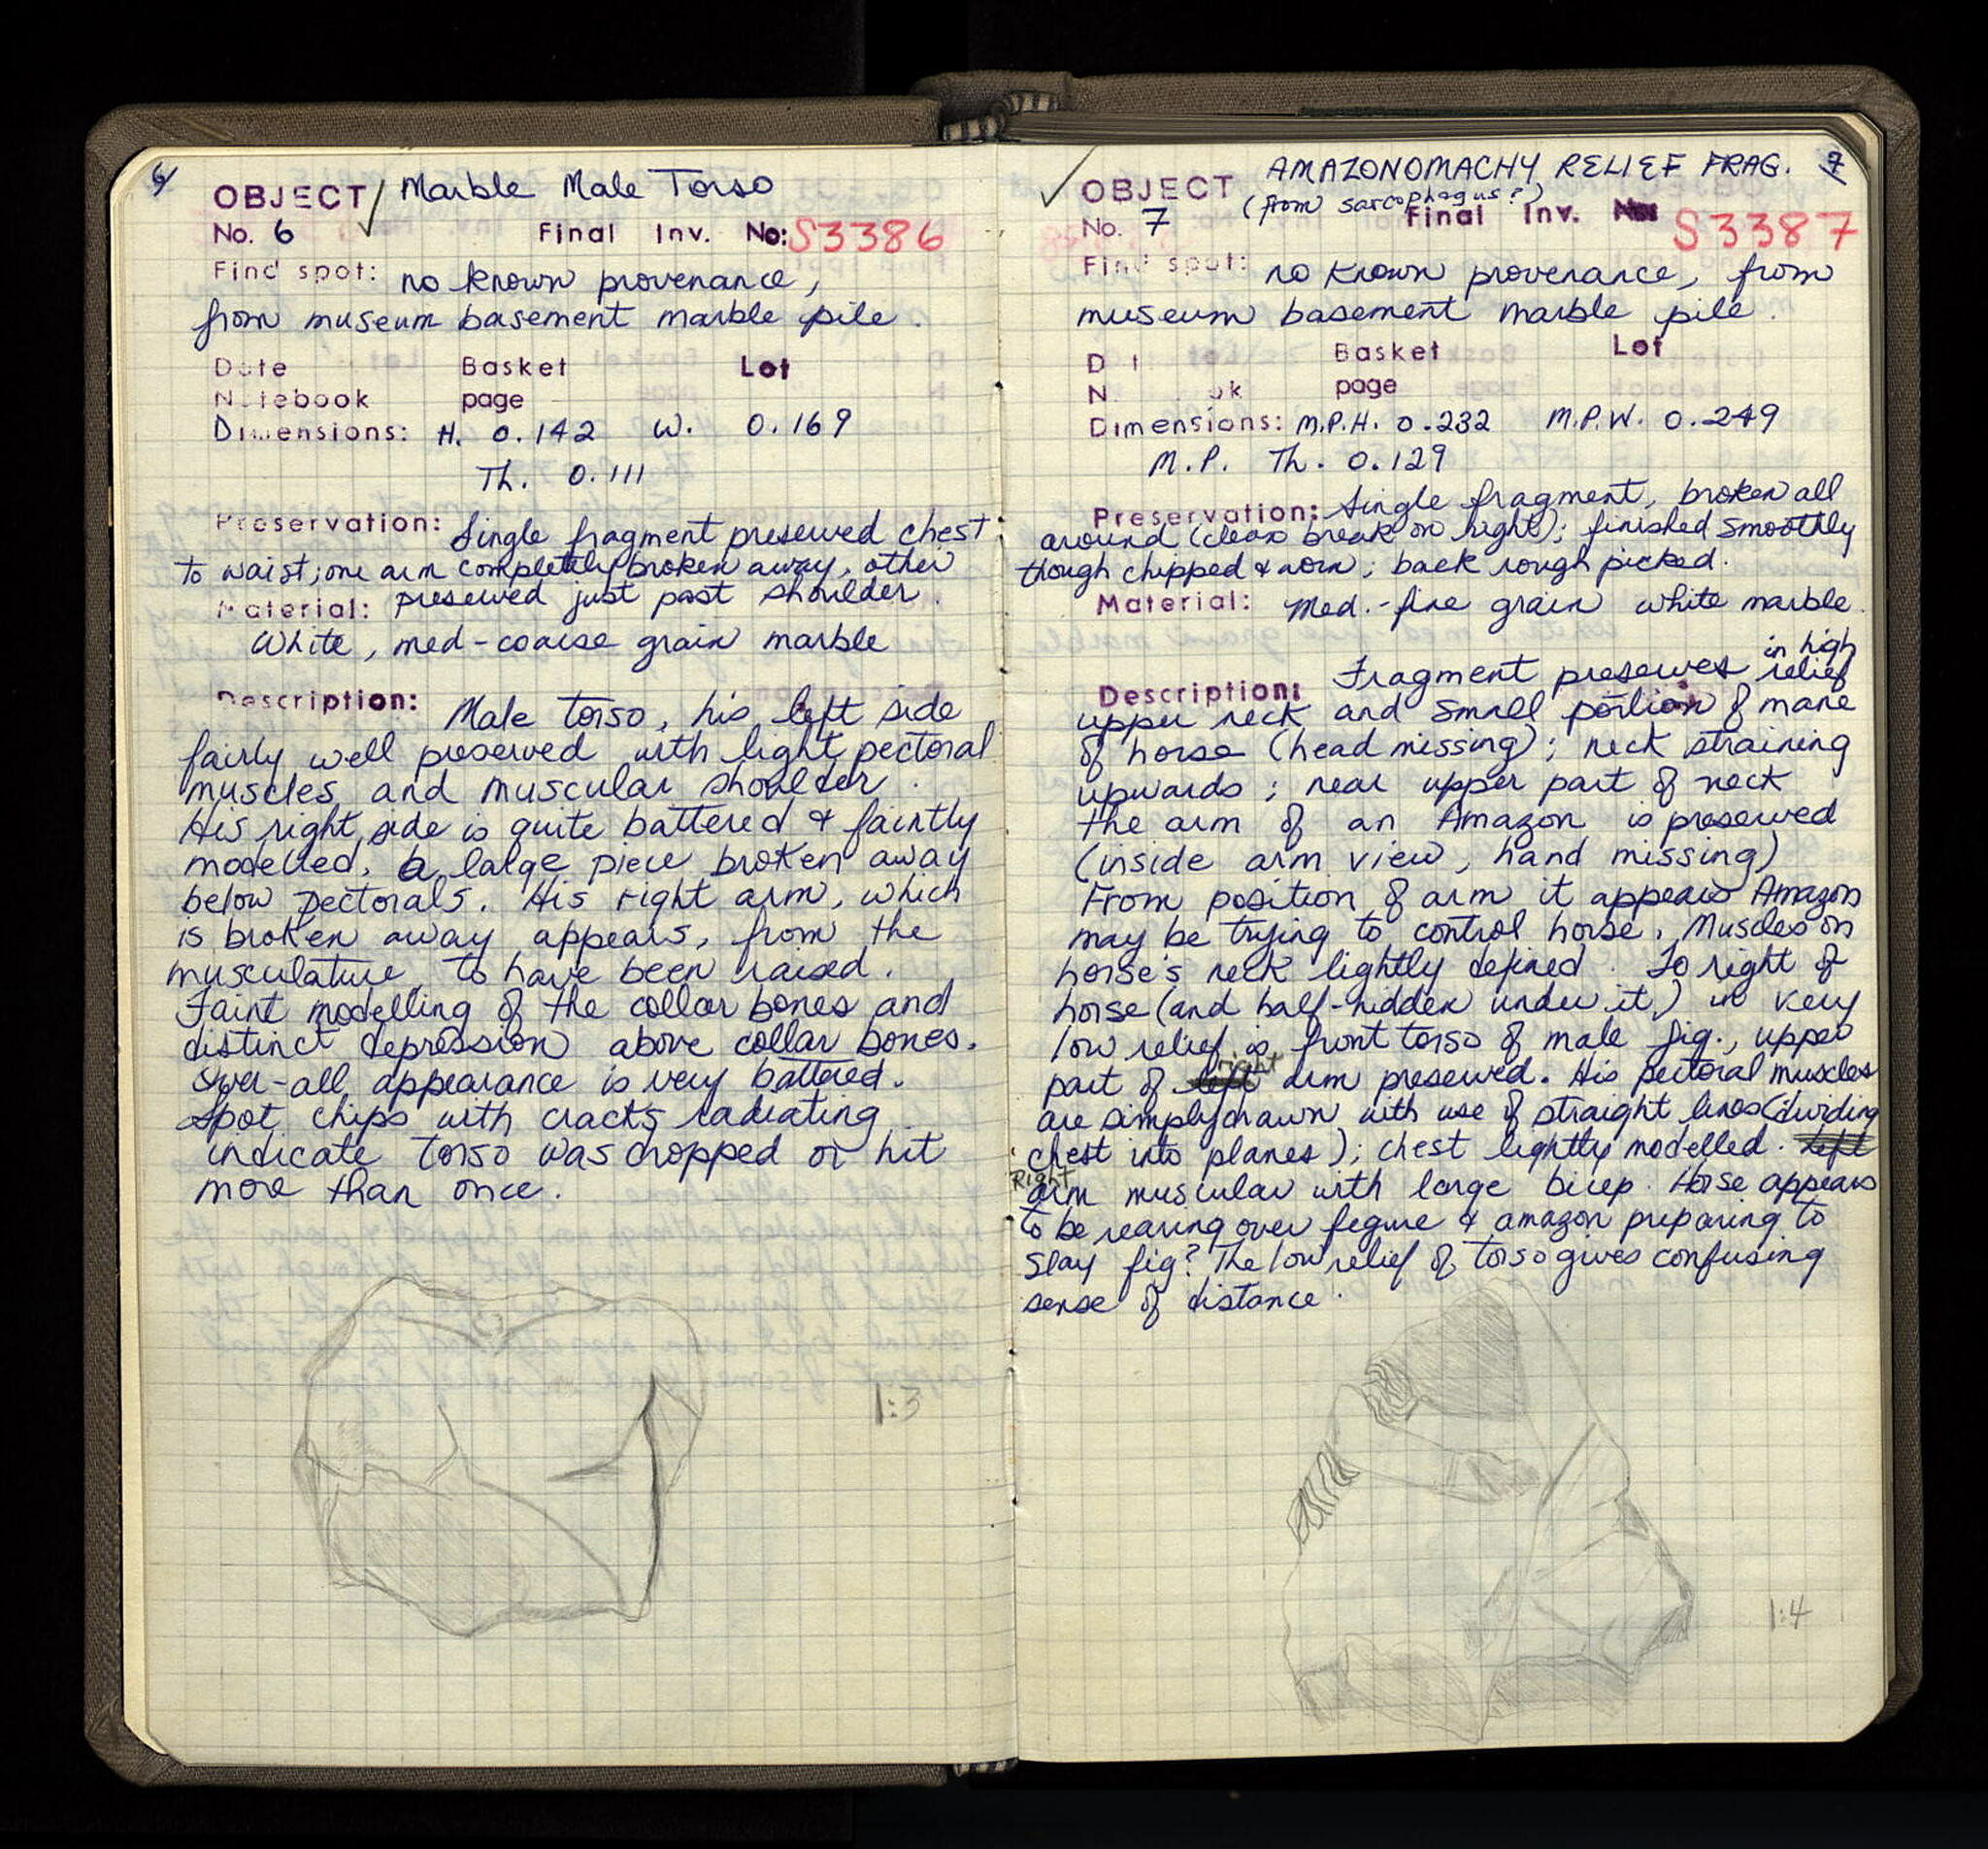 6
OBJECT Marble Male Torso
No. 6 Final Inv. No: S3386
Find spot: no known provenance,
from museum basement marble pile.
Date Basket Lot
Notebook page
Dimensions: H. 0.142 W. 0.169
Th. 0.111
Preservation: Single fragment preserved chest
to waist; one arm completely broken away, other
Material: preserved just past shoulder.
White, med-coarse grain marble
Description: Male torso, his left side
fairly well preserved with light pectoral
muscles and muscular shoulder.
His right side is quite battered & faintly
modelled, a large piece broken away
below pectorals. His right arm, which
is broken away appears, from the
musculature, to have been raised.
Faint modelling of the collar bones and
distinct depression above collar bones.
Over-all appearance is very battered.
Spot chips with cracks radiating
indicate torso was dropped or hit
more than once.
1:3
OBJECT AMAZONOMACHY RELIEF FRAG. 7
(from sarcophagus?)
No. 7 Final Inv. No: S3387
Find spot: no known provenance, from
museum basement marble pile.
D t Basket Lot
N. ok page
Dimensions: M.P.H. 0.232 M.P.W. 0.249
M.P. Th. 0.129
Preservation: Single fragment, broken all
around (clean break on right); finished smoothly
though chipped & worn; back rough picked.
Material: Med.-fine grain white marble.
Description: Fragment preserves in high relief
upper neck and small portion of mane
of horse (head missing); neck straining
upwards; near upper part of neck
the arm of an Amazon is preserved
(inside arm view, hand missing)
From position of arm it appears Amazon
may be trying to control horse. Muscles on
horse's neck lightly defined. To right of
horse (and half-hidden under it) in very
low relief is front torso of male fig., upper
part of left right arm preserved. His pectoral muscles
are simply drawn with use of straight lines (dividing
chest into planes); chest lightly modelled. Left
Right arm muscular with large bicep. Horse appears
to be rearing over figure & amazon preparing to
slay fig? The low relief of torso gives confusing
sense of distance.
1:4